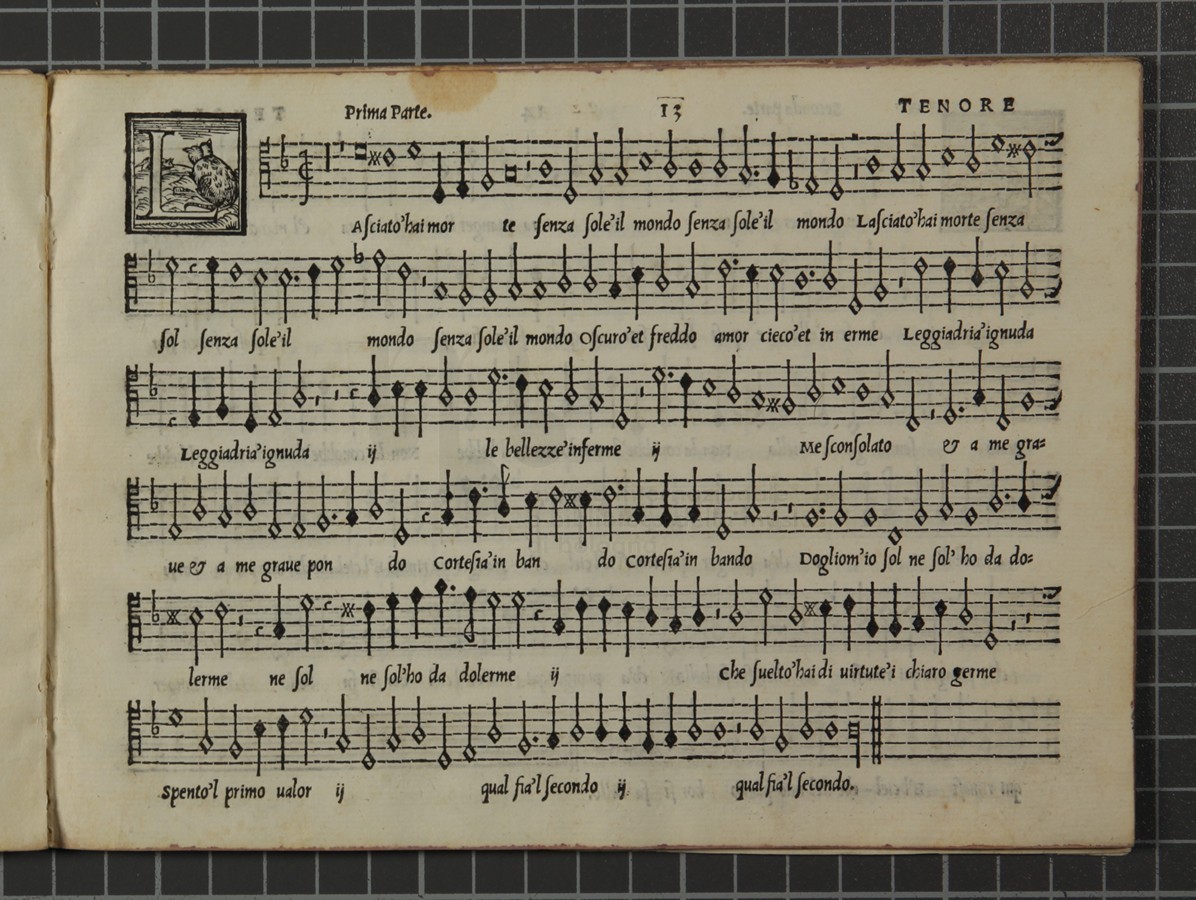 Prima Parte. 13 TENORE
L Aſciato'hai mor te ſenza ſole'il mondo ſenza ſole'il mondo Laſciato'hai morte ſenza
ſol ſenza ſole'il mondo ſenza ſole'il mondo Oſcuro'et freddo amor cieco'et in erme Leggiadria'ignuda
Leggiadria'ignuda ij le bellezze'inferme ij Me ſconſolato & a me gra=
ue & a me graue pon do Corteſia'in ban do Corteſia'in bando Dogliom'io ſol ne ſol' ho da do=
lerme ne ſol ne ſol'ho da dolerme ij Che ſuelto'hai di uirtute'i chiaro germe
Spento'l primo ualor ij qual fia'l ſecondo ij qual fia'l ſecondo.